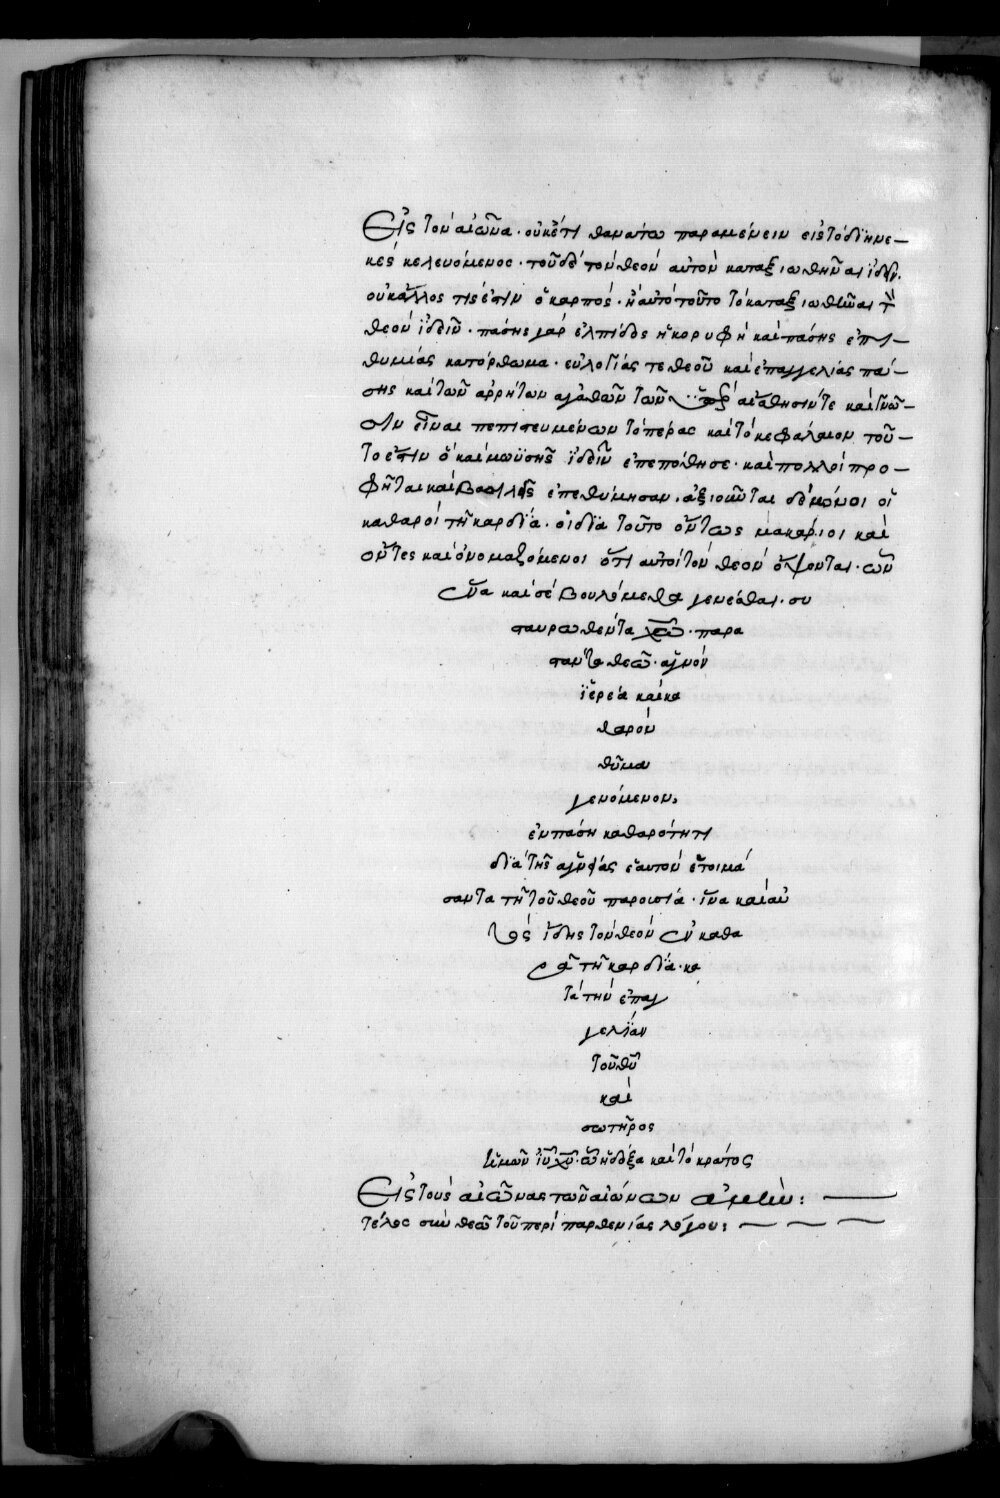 Εἰς τὸν αἰῶνα · οὐκέτι θανάτω παραμένειν εἰς τὸ διηνε-
κὲς κελευόμενος · τοῦ δὲ τὸν θεὸν αὐτὸν καταξιωθῆναι ἰδεῖν.
οὐκ ἄλλος τίς ἐστιν ὁ καρπός · ἢ αὐτὸ τοῦτο τὸ καταξιωθῆναι τὸν
θεὸν ἰδεῖν · πάσης γὰρ ἐλπίδος ἡ κορυφὴ καὶ πάσης ἐπι-
θυμίας κατόρθωμα · εὐλογίας τε θεοῦ καὶ ἐπαγγελίας πά-
σης καὶ τῶν ἀρρήτων ἀγαθῶν τῶν ὑπὲρ αἴσθησίν τε καὶ γνῶ-
σιν εἶναι πεπιστευμένων τὸ πέρας καὶ τὸ κεφάλαιον τοῦ-
το ἐστιν ὃ καὶ μωϋσῆς ἰδεῖν ἐπεπόθησε · καὶ πολλοὶ προ-
φῆται καὶ βασιλεῖς ἐπεθύμησαν · ἀξιοῦνται δὲ μόνοι οἱ
καθαροὶ τῆ καρδία · οἱ διὰ τοῦτο ὄντως μακάριοι καὶ
ὄντες καὶ ὀνομαζόμενοι ὅτι αὐτοὶ τὸν θεὸν ὄψονται · ὧν
ἕνα καὶ σὲ βουλόμεθα γενέσθαι · συ
σταυρωθέντα χῶ · παρα
στάντα θεῶ · ἁγνὸν
ἱερέα καὶ κα
θαρὸν
θῦμα
γενόμενον,
ἐν πάση καθαρότητι
διὰ τῆς ἁγνείας ἑαυτὸν ἑτοιμά
σαντα τῆ τοῦ θεοῦ παρουσία · ἵνα καὶ αὐ
τὸς ἴδης τὸν θεὸν ἐν καθα
ρᾶ τῆ καρδία · κα
τὰ τὴν ἐπαγ
γελίαν
τοῦ θῦ
καὶ
σωτῆρος
ἡμῶν ἰῦ χῦ · ὧ ἡ δόξα καὶ τὸ κράτος
Εἰς τοὺς αἰῶνας τῶν αἰώνων ἀμήν :
τέλος σὺν θεῶ τοῦ περὶ παρθενίας λόγου :